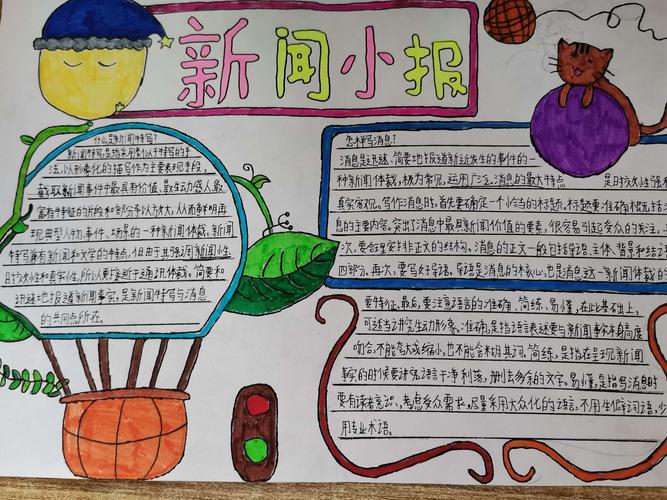 新闻小报
什么是新闻特写?
新闻特写,是指采用类似于特写的手
法,以形象化的描写作为主要表现手段,
截取新闻事件中最具有价值、最生动感人、最
富有特征的片段和部分予以放大,从而鲜明再
现典型人物、事件、场景的一种新闻体裁。新闻
特写兼有新闻和文学的特点,但由于其强调新闻性、
时效性和真实性,所以更接近于通讯体裁。简要和
迅速地报道新闻事实,是新闻特写与消息
的共同点所在。
怎样写消息?
消息是迅速、简要地报道新近发生的事件的一
种新闻体裁,极为常见,运用广泛。消息的最大特点 是时效性强和
真实客观。写作消息时,首先要确定一个恰当的标题。标题要准确概
息的主要内容。突出了消息中最具新闻价值的要素,很容易引起受众的关注。
次,要合理安排正文的结构。消息的正文一般包括导语、主体、背景和结
四部分。再次,要写好导语。导语是消息的核心,也是消息这一新闻体裁的
要特征。最后,要注意语言的准确、简练、易懂,在此基础上,
可适当讲究生动形象。准确,是指语言表述要与新闻事实本身高度
吻合,不能夸大或缩小,也不能含糊其词。简练,是指在呈现新闻
事实的时候要讲究语言干净利落,删去多余的文字。易懂,是指写消息时
要有读者意识,考虑受众需求,尽量采用大众化的语言,不用生僻词语,少
用专业术语。